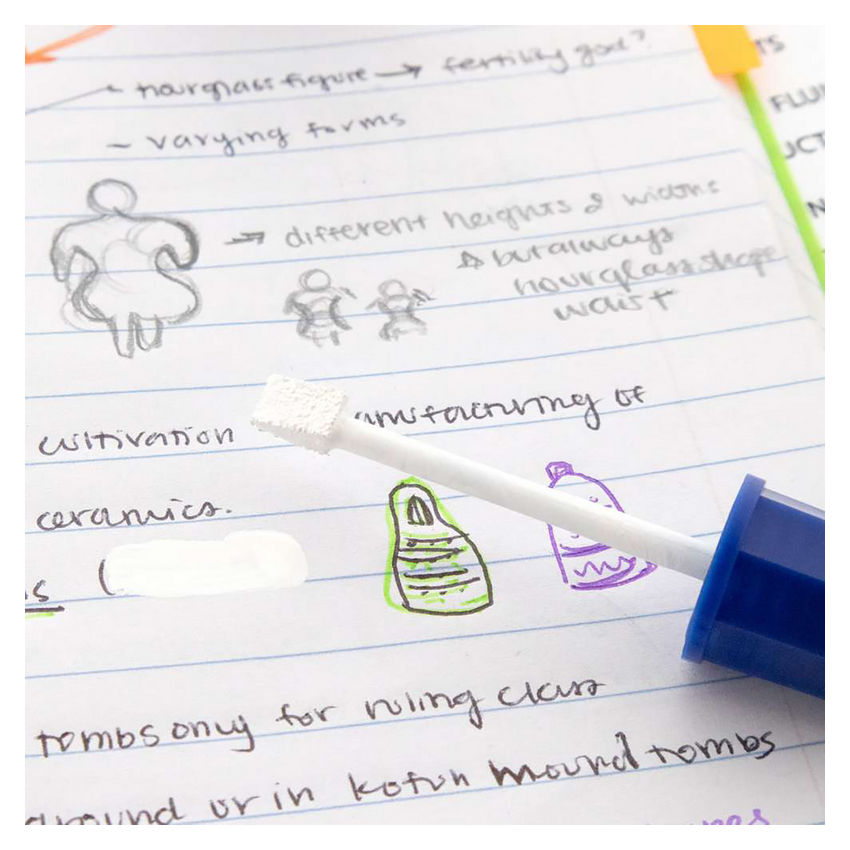 - hourglass figure → fertility god?
- varying forms
→ different heights & widths
but always
hourglass shape
waist
cultivation
ceramics.
(
tombs only for ruling class
ground or in kofun mound tombs
FLU
UCT